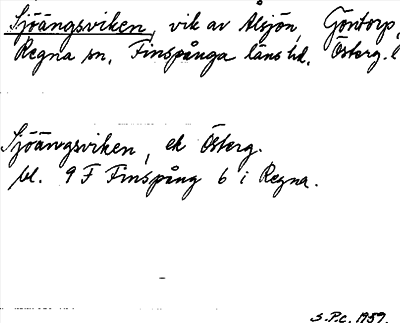 Sjöängsviken, vik av Ålsjön, Göntorp,
Regna sn, Finspånga läns hd. Österg. l
Sjöängsviken, ek Österg.
bl. 9 F Finspång 6 i Regna.
S.P.C. 1959.